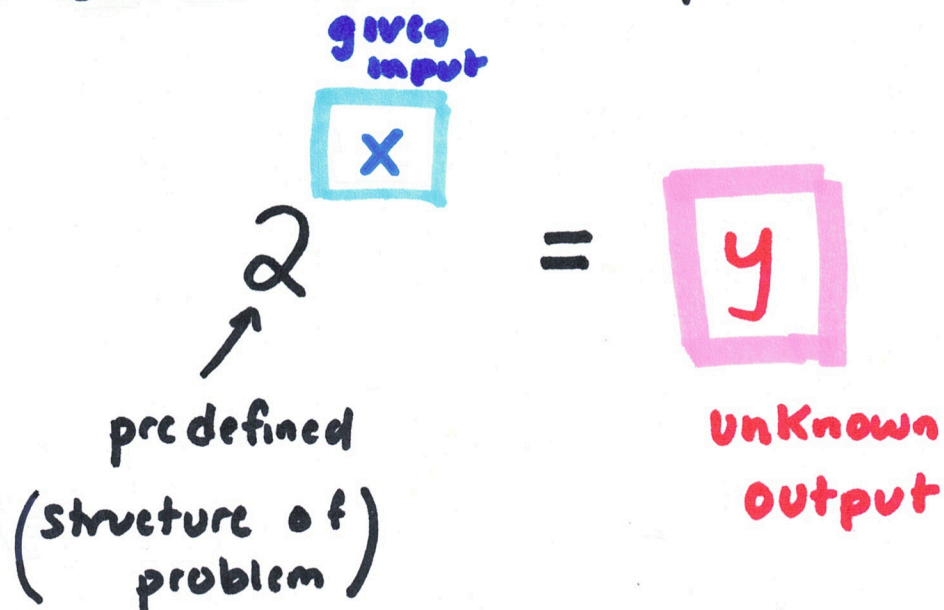 given
input
x
2
=
y
predefined
(structure of
problem)
unknown
output